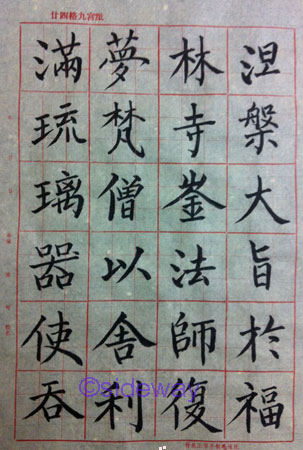 廿四格九宮
涅槃大旨於福
林寺崟法師復
夢梵僧以舍利
滿琉璃器使吞
©sideway